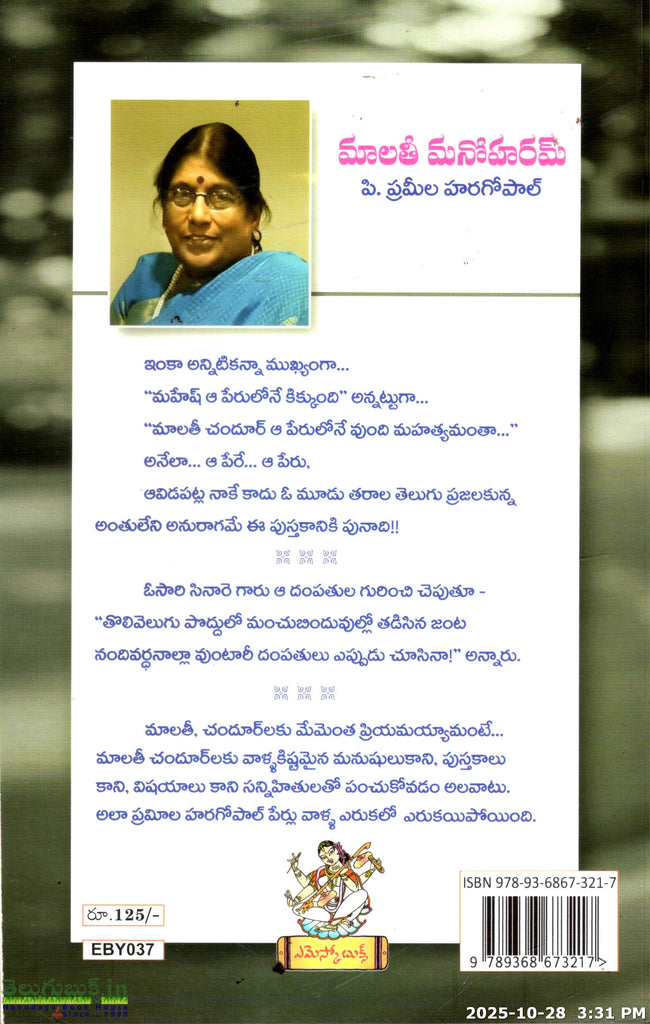 మాలతీ మనోహరమ్
పి. ప్రమీల హరగోపాల్
ఇంకా అన్నిటికన్నా ముఖ్యంగా...
“మహేష్ ఆ పేరులోనే కిక్కుంది” అన్నట్టుగా...
“మాలతీ చందూర్ ఆ పేరులోనే వుంది మహత్యమంతా...”
అనేలా... ఆ పేరే... ఆ పేరు,
ఆవిడపట్ల నాకే కాదు ఓ మూడు తరాల తెలుగు ప్రజలకున్న
అంతులేని అనురాగమే ఈ పుస్తకానికి పునాది!!
ఓసారి సినారె గారు ఆ దంపతుల గురించి చెపుతూ -
“తొలివెలుగు పొద్దులో మంచుబిందువుల్లో తడిసిన జంట
నందివర్ధనాల్లా వుంటారీ దంపతులు ఎప్పుడు చూసినా!” అన్నారు.
మాలతీ, చందూర్‌లకు మేమెంత ప్రియమయ్యామంటే...
మాలతీ చందూర్‌లకు వాళ్ళకిష్టమైన మనుషులుకాని, పుస్తకాలు
కాని, విషయాలు కాని సన్నిహితులతో పంచుకోవడం అలవాటు.
అలా ప్రమీల హరగోపాల్ పేర్లు వాళ్ళ ఎరుకలో ఎరుకయిపోయింది.
రూ.125/-
EBY037
ఎమెస్కో బుక్స్
ISBN 978-93-6867-321-7
9 789368 673217 >
తెలుగుబుక్స్.in
Navodaya Book House
Since...1990
2025-10-28 3:31 PM